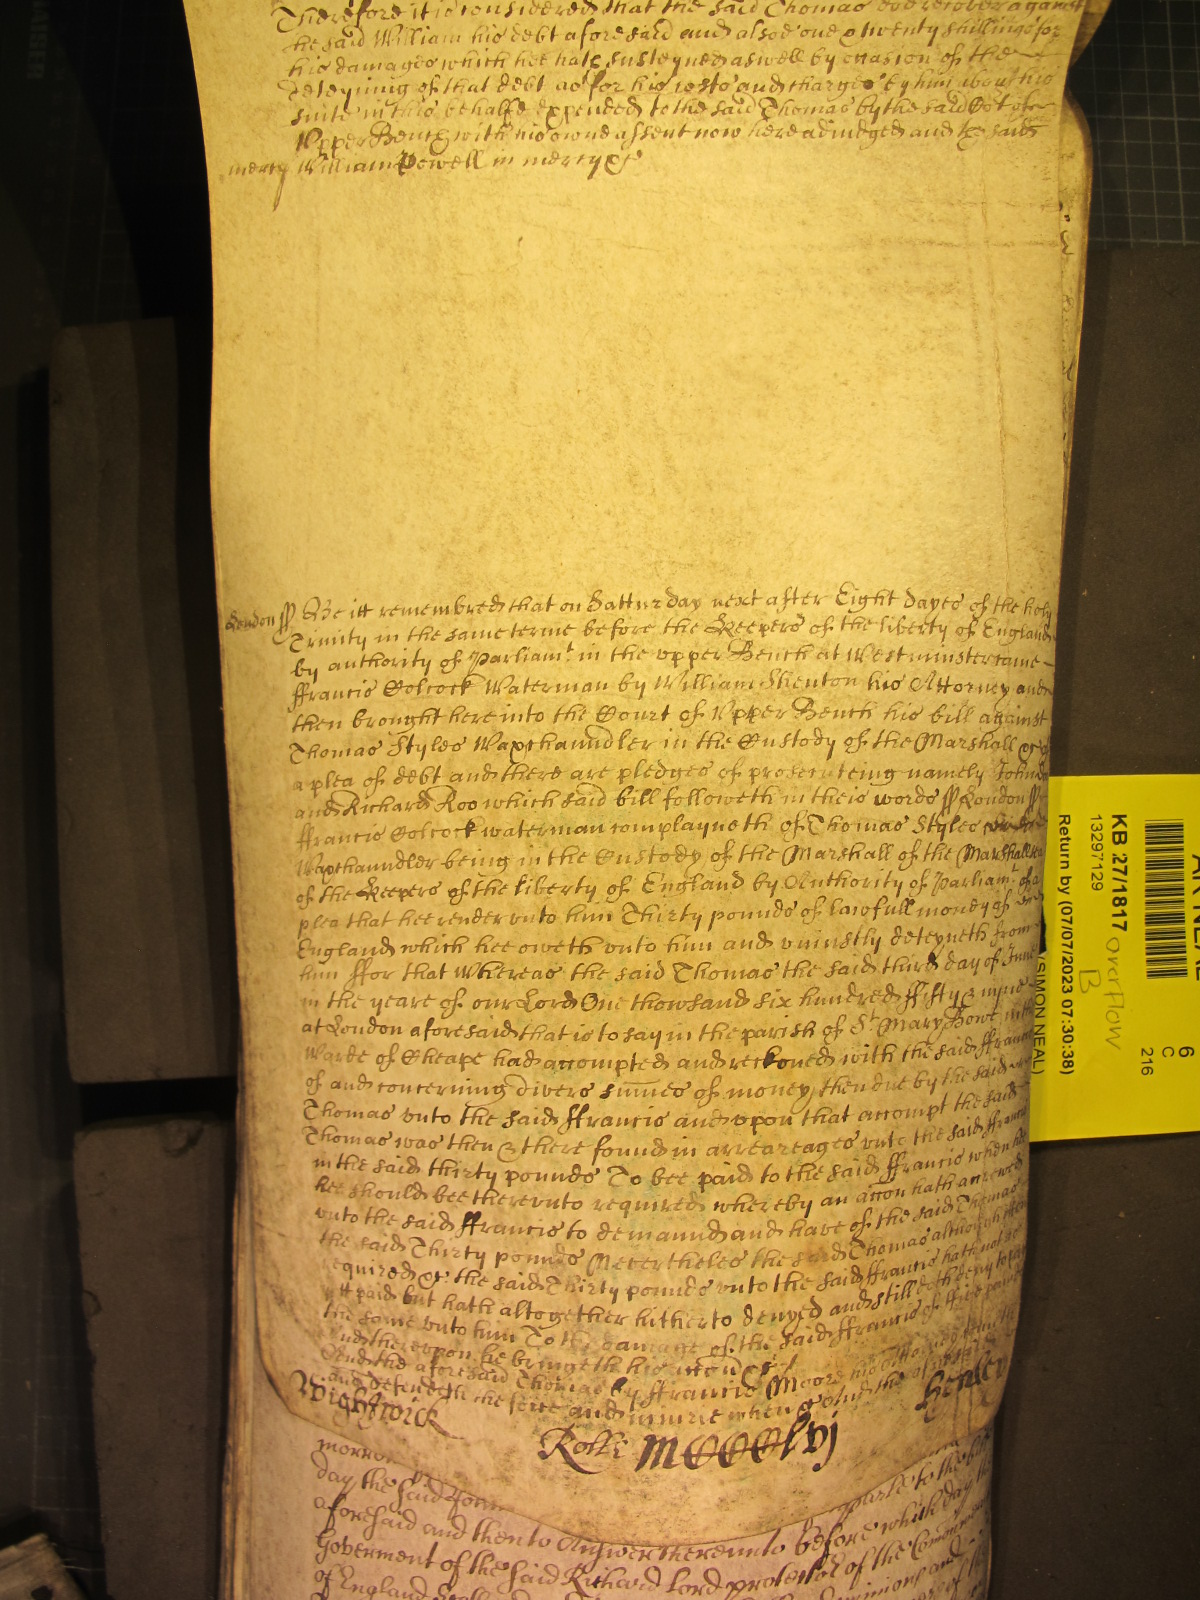 Therefore it is considered that the said Thomas doe recover against
the said William his debt aforesaid and alsoe one & twenty shillings for
his damages which hee hath susteyned aswell by occasion of the
deteyning of that debt as for his costs and charges by him about his
suite in this behalfe expended to the said Thomas by the said Court of
Vpper Bench with his owne assent now here adiudged and the said
mercy William Powell in mercy &c
London ss Be itt remembred that on Satturday next after Eight dayes of the holy
Trinity in the same terme before the Keepers of the liberty of England
by authority of Parliamt in the vpper Bench at Westminster came
ffrancis Colcock Waterman by William Shenton his Attorney and
then brought here into the Court of Vpper Bench his bill against
Thomas Styles Waxchaundler in the Custody of the Marshall &c of
a plea of debt and there are pledges of prosecuteing namely John
and Richard Roo which said bill followeth in theis words ss London ss
ffrancis Colcock waterman complayneth of Thomas Styles
Waxchaundler being in the Custody of the Marshall of the Marshallsea
of the Keepers of the liberty of England by Authority of Parliamt of a
plea that hee render vnto him Thirty pounds of lawfull money of
England which hee oweth vnto him and vniustly deteyneth from
him ffor that Whereas the said Thomas the said third day of June
in the yeare of our Lord One thowsand six hundred fifty & nyne
at London aforesaid that is to say in the parish of St Mary Bowe in the
Warde of Cheape had accompted and reckoned with the said ffrancis
of and concerning divers sumes of money then due by the said
Thomas vnto the said ffrancis and vpon that accompt the said
Thomas was then & there found in arreareages vnto the said ffrancis
in the said thirty pounds To bee paid to the said ffrancis when
hee should bee therevnto required whereby an accon hath accrewed
vnto the said ffrancis to demaund and have of the said Thomas
the said Thirty pounds Neverthelos the said Thomas although often
required &c the said Thirty pounds vnto the said ffrancis hath not
yett paid but hath altogether hitherto denyed and still doth deny to pay
the same vnto him To the damage of the said ffrancis of
and therevpon he bringeth his &c
And the aforesaid Thomas by ffrancis Moore his Attorney
and defendeth the force and iniurie when &c And the
Wightwick
Henley
Rolle MCCCClvj
morrow
day the said
aforesaid and then to Answer therevnto before which day
Goverment of the said Richard Lord protector of the Commonwealth
of England
KB 27/1817 overflow
B
13297129
Return by (07/07/2023 07:30:38)
(SIMON NEAL)
6
C
216